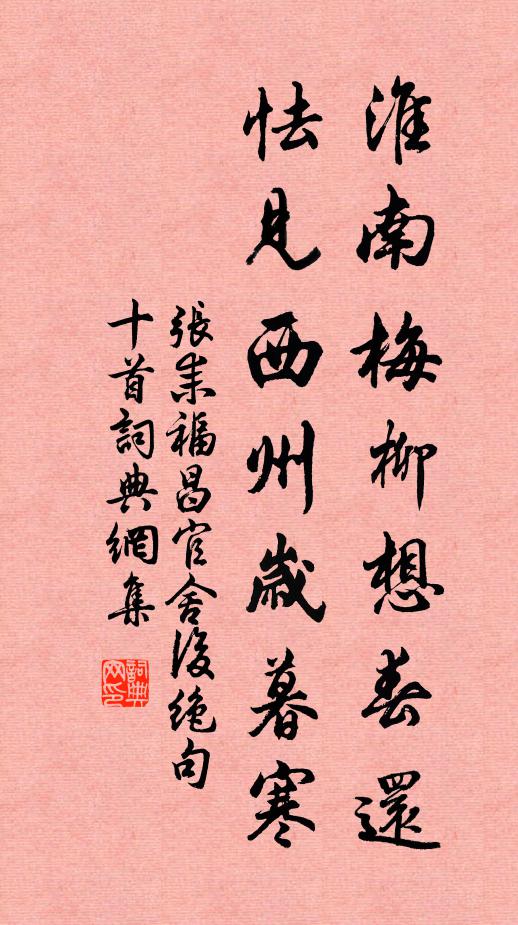 淮南梅柳想春還
怯見西州歲暮寒
張耒福昌官舍後絕句
十首詞典網集
詞典網印